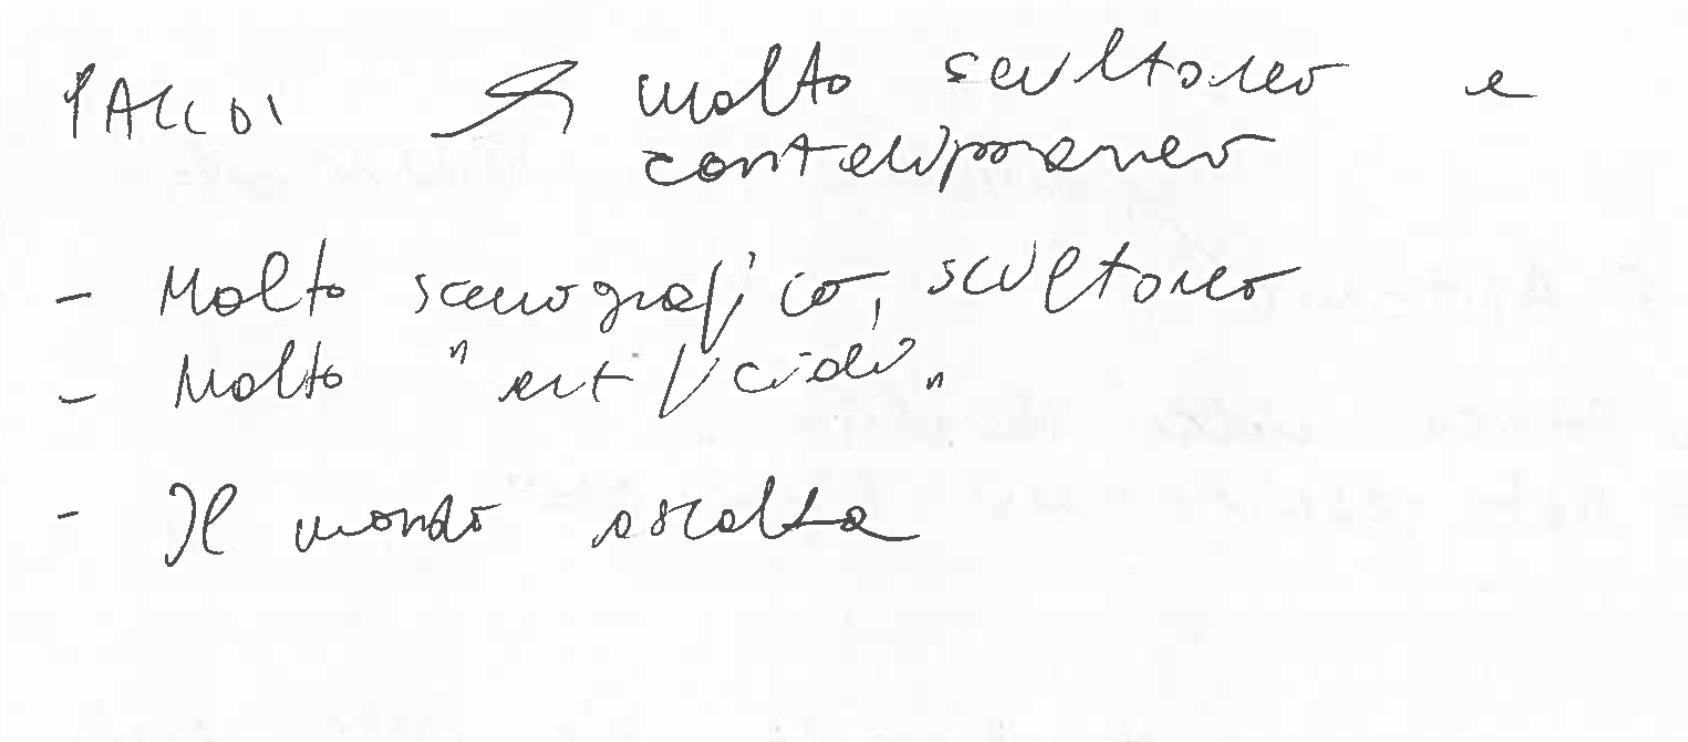 PALLOI → molto scultoreo e
contemporaneo
- Molto scenografico, scultoreo
- Molto "artificiale"
- Il mondo ascolta